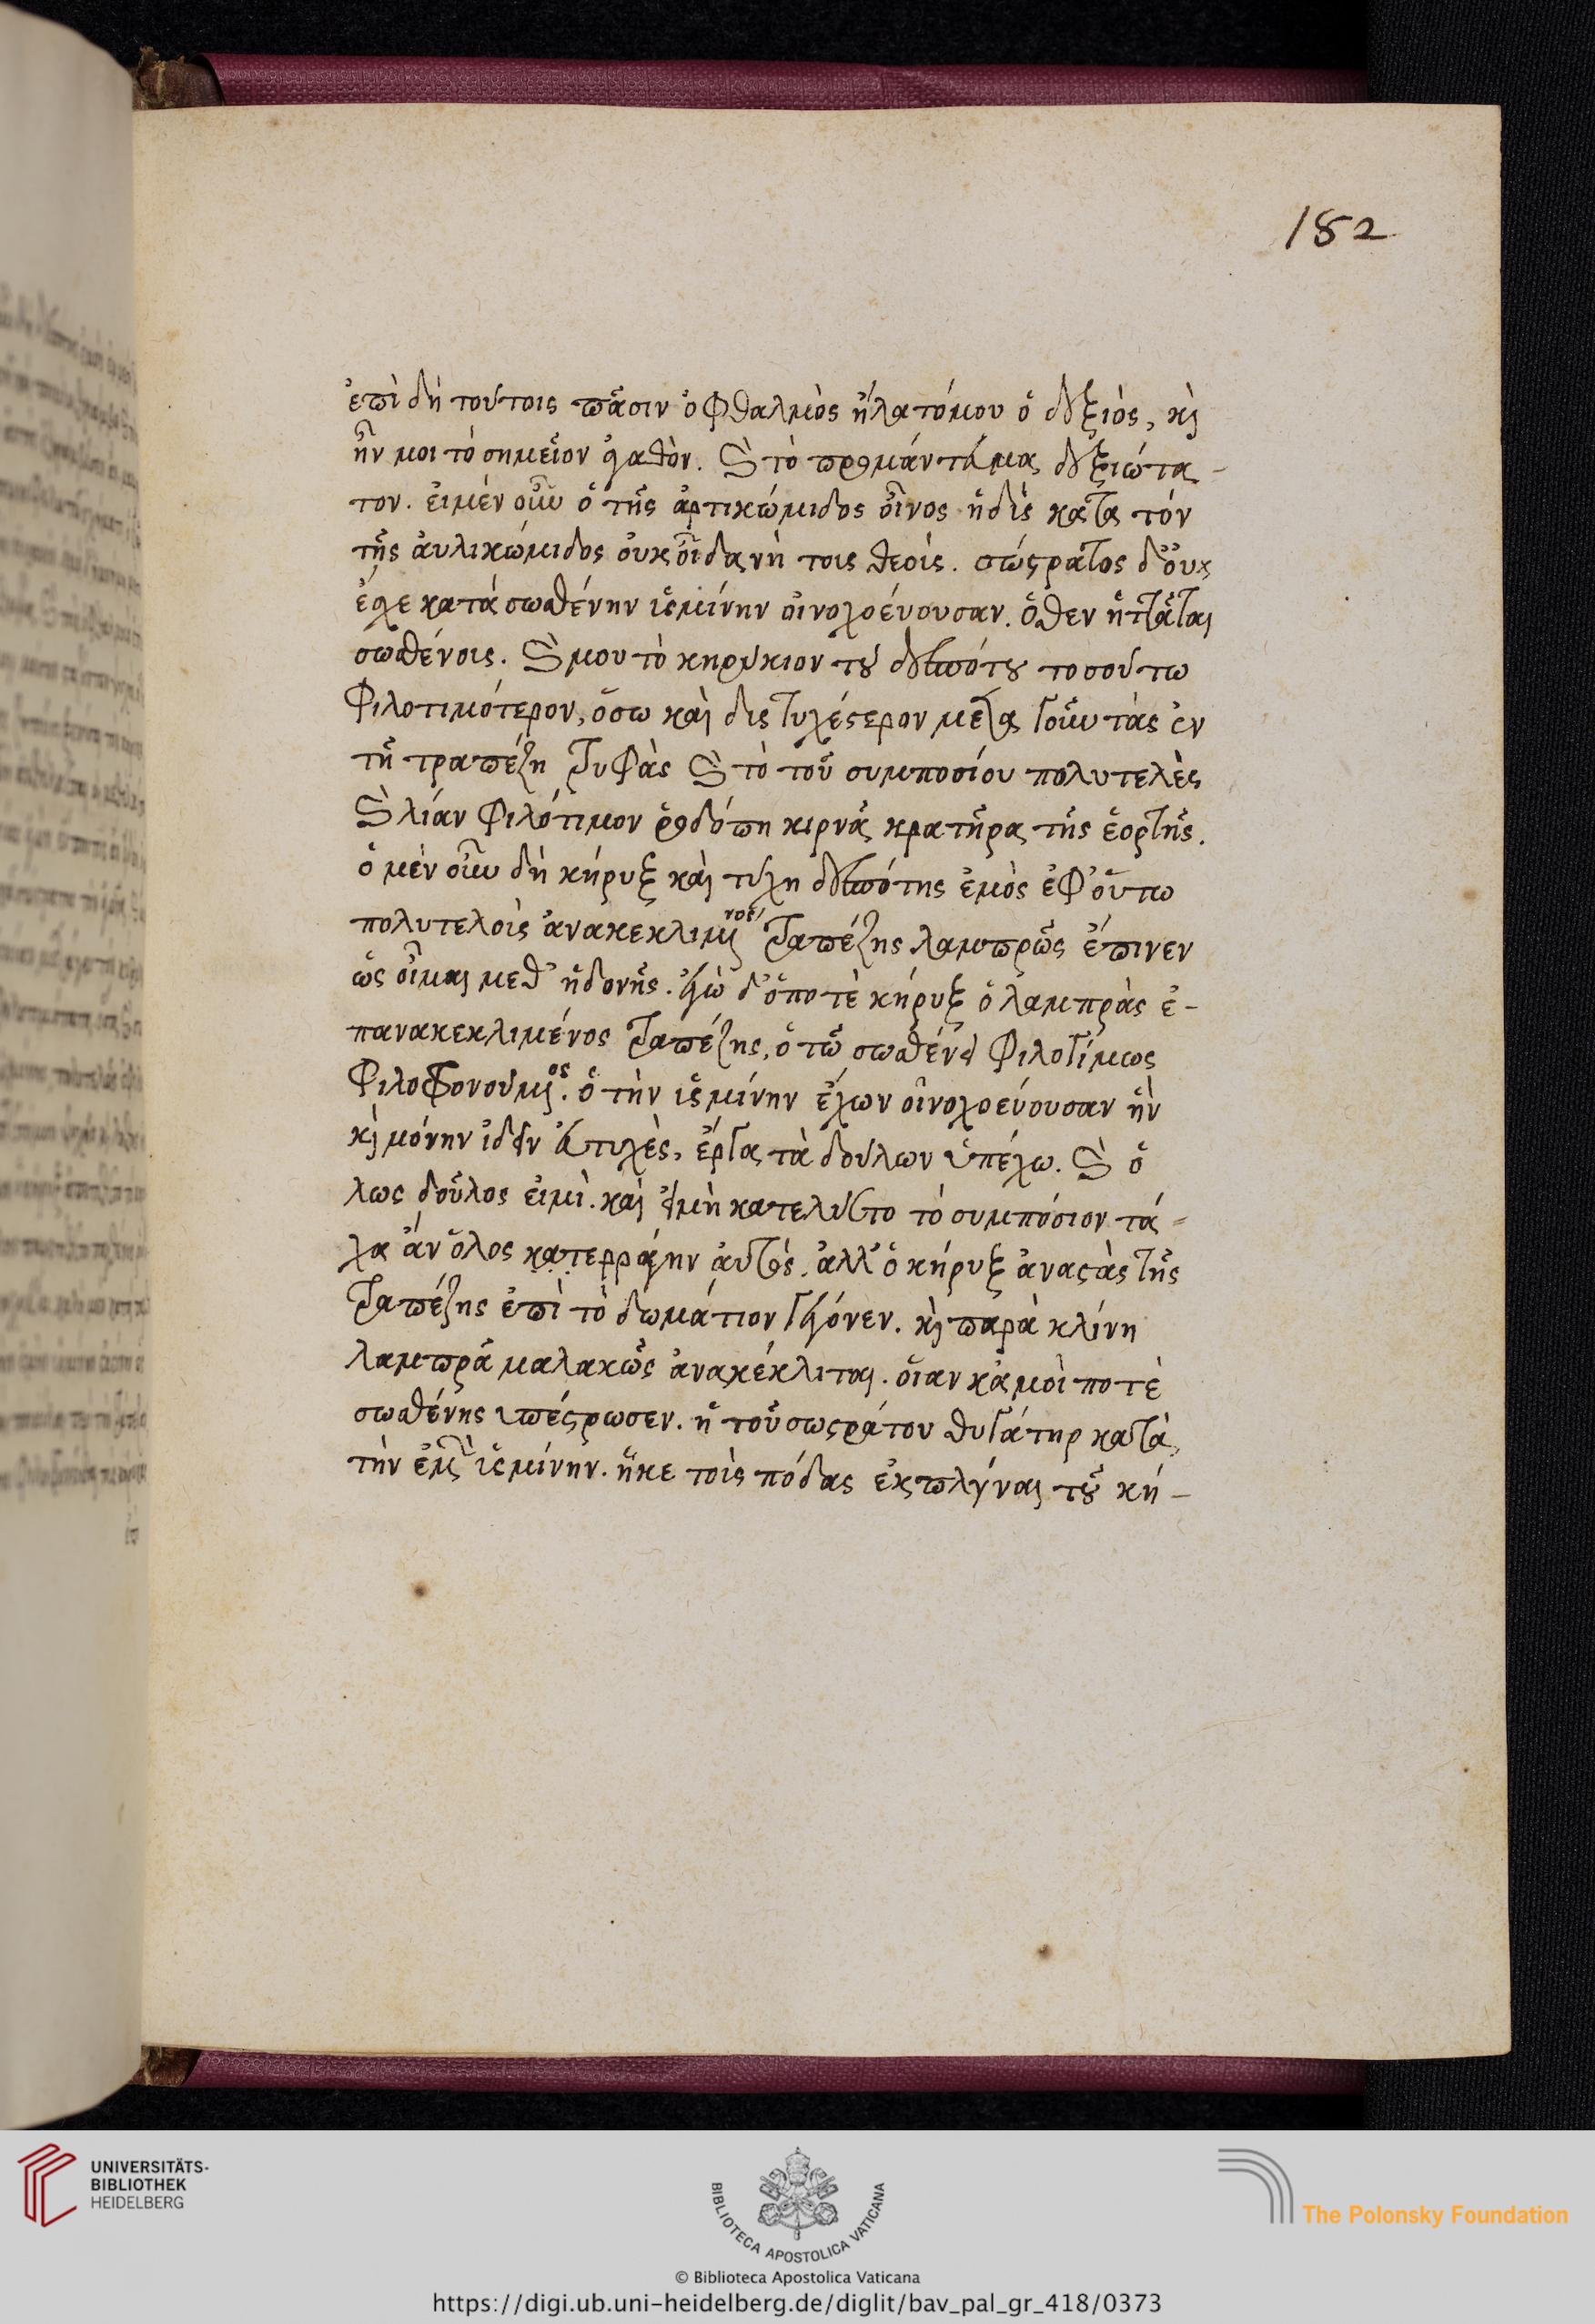 182
ἐπὶ δὴ τούτοις πᾶσιν ὀφθαλμὸς ἥλατό μου ὁ δεξιὸς, κὶ
ἦν μοι τὸ σημεῖον ἀγαθὸν. καὶ τὸ προμάντευμα δεξιώτα-
τον. εἰ μὲν οὖν ὁ τῆς ἀρτικώμιδος οἶνος ἡδὺς κατὰ τόν
τῆς ἀυλικώμιδος οὐκ οἶδα νὴ τοις θεοὶς. σώστρατος δ' οὐκ
ἔχε κατὰ σωσθένην ἱσμίνην οἰνοχοεύουσαν. ὅθεν ἡττᾶται
σωσθένοις. καὶ μου τὸ κηρύκιον τοῦ δεσπότου τοσούτω
φιλοτιμότερον, ὅσω καὶ δυστυχέστερον μετὰ γοῦν τὰς ἐν
τῆ τραπέζη τρυφὰς καὶ τὸ τοῦ συμποσίου πολυτελὲς
καὶ λίαν φιλότιμον ῥοδόπη κιρνᾶ κρατῆρα τῆς ἑορτῆς.
ὁ μὲν οὖν δὴ κήρυξ καὶ τύχη δεσπότης ἐμὸς ἐφ' οὕτω
πολυτελοὶς ἀνακεκλιμένος τραπέζης λαμπρῶς ἔπινεν
ὡς οἶμαι μεθ' ἡδονῆς. ἐγὼ δ' ὅποτὲ κήρυξ ὁ λαμπρὰς ἐ-
πανακεκλιμένος τραπέζης, ὁ τῶ σωσθένει φιλοτίμως
φιλοφρονούμενος. ὁ τὴν ἱσμίνην ἔχων οἰνοχοεύουσαν ἣν
κὶ μόνην ἰδεῖν εὐτυχὲς, ἔργα τὰ δούλων ὑπέχω. καὶ ὅ
λως δοῦλος εἰμὶ. καὶ εἰ μὴ κατελύετο τὸ συμπόσιον τά-
χα ἂν ὅλος κατερράγην αὐτὸς. ἀλλ' ὁ κήρυξ ἀναστὰς τῆς
τραπέζης ἐπὶ τὸ δωμάτιον γέγονεν. κὶ παρὰ κλίνη
λαμπρᾶ μαλακῶς ἀνακέκλιται. οἵαν κἀμοὶ ποτὲ
σωσθένης ὑπέστρωσεν. ἡ τοῦ σωστράτου θυγάτηρ κατὰ
τὴν ἐμὴν ἱσμίνην. ἧκε τοὶς πόδας ἐκπλῦναι τοῦ κή-
UNIVERSITÄTS-
BIBLIOTHEK
HEIDELBERG
BIBLIOTECA APOSTOLICA VATICANA
The Polonsky Foundation
© Biblioteca Apostolica Vaticana
https://digi.ub.uni-heidelberg.de/diglit/bav_pal_gr_418/0373